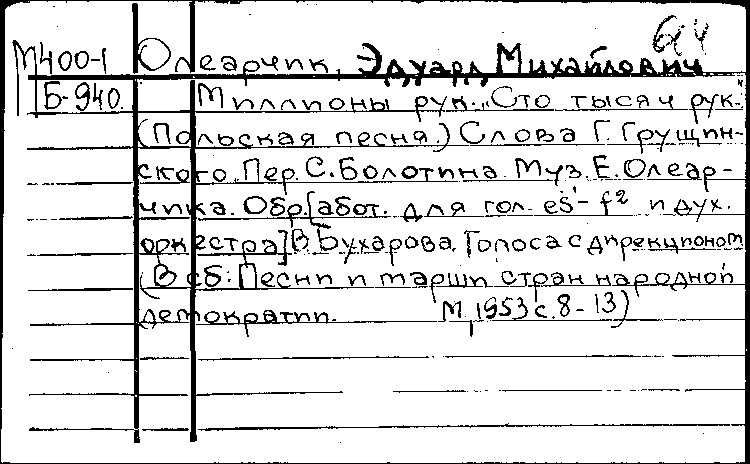 М400-1 Олеарчик, Эдуард Михайлович
Б-940. Миллионы рук. „Сто тысяч рук."
(Польская песня.) Слова Г. Грущин-
ского. Пер. С. Болотина. Муз. Е. Олеар-
чика. Обр[абот. для гол. es¹- f² и дух.
оркестра] В. Бухарова. Голоса с дирекционом
(В сб: Песни и марши стран народной
демократии. М, 1953 с. 8-13)